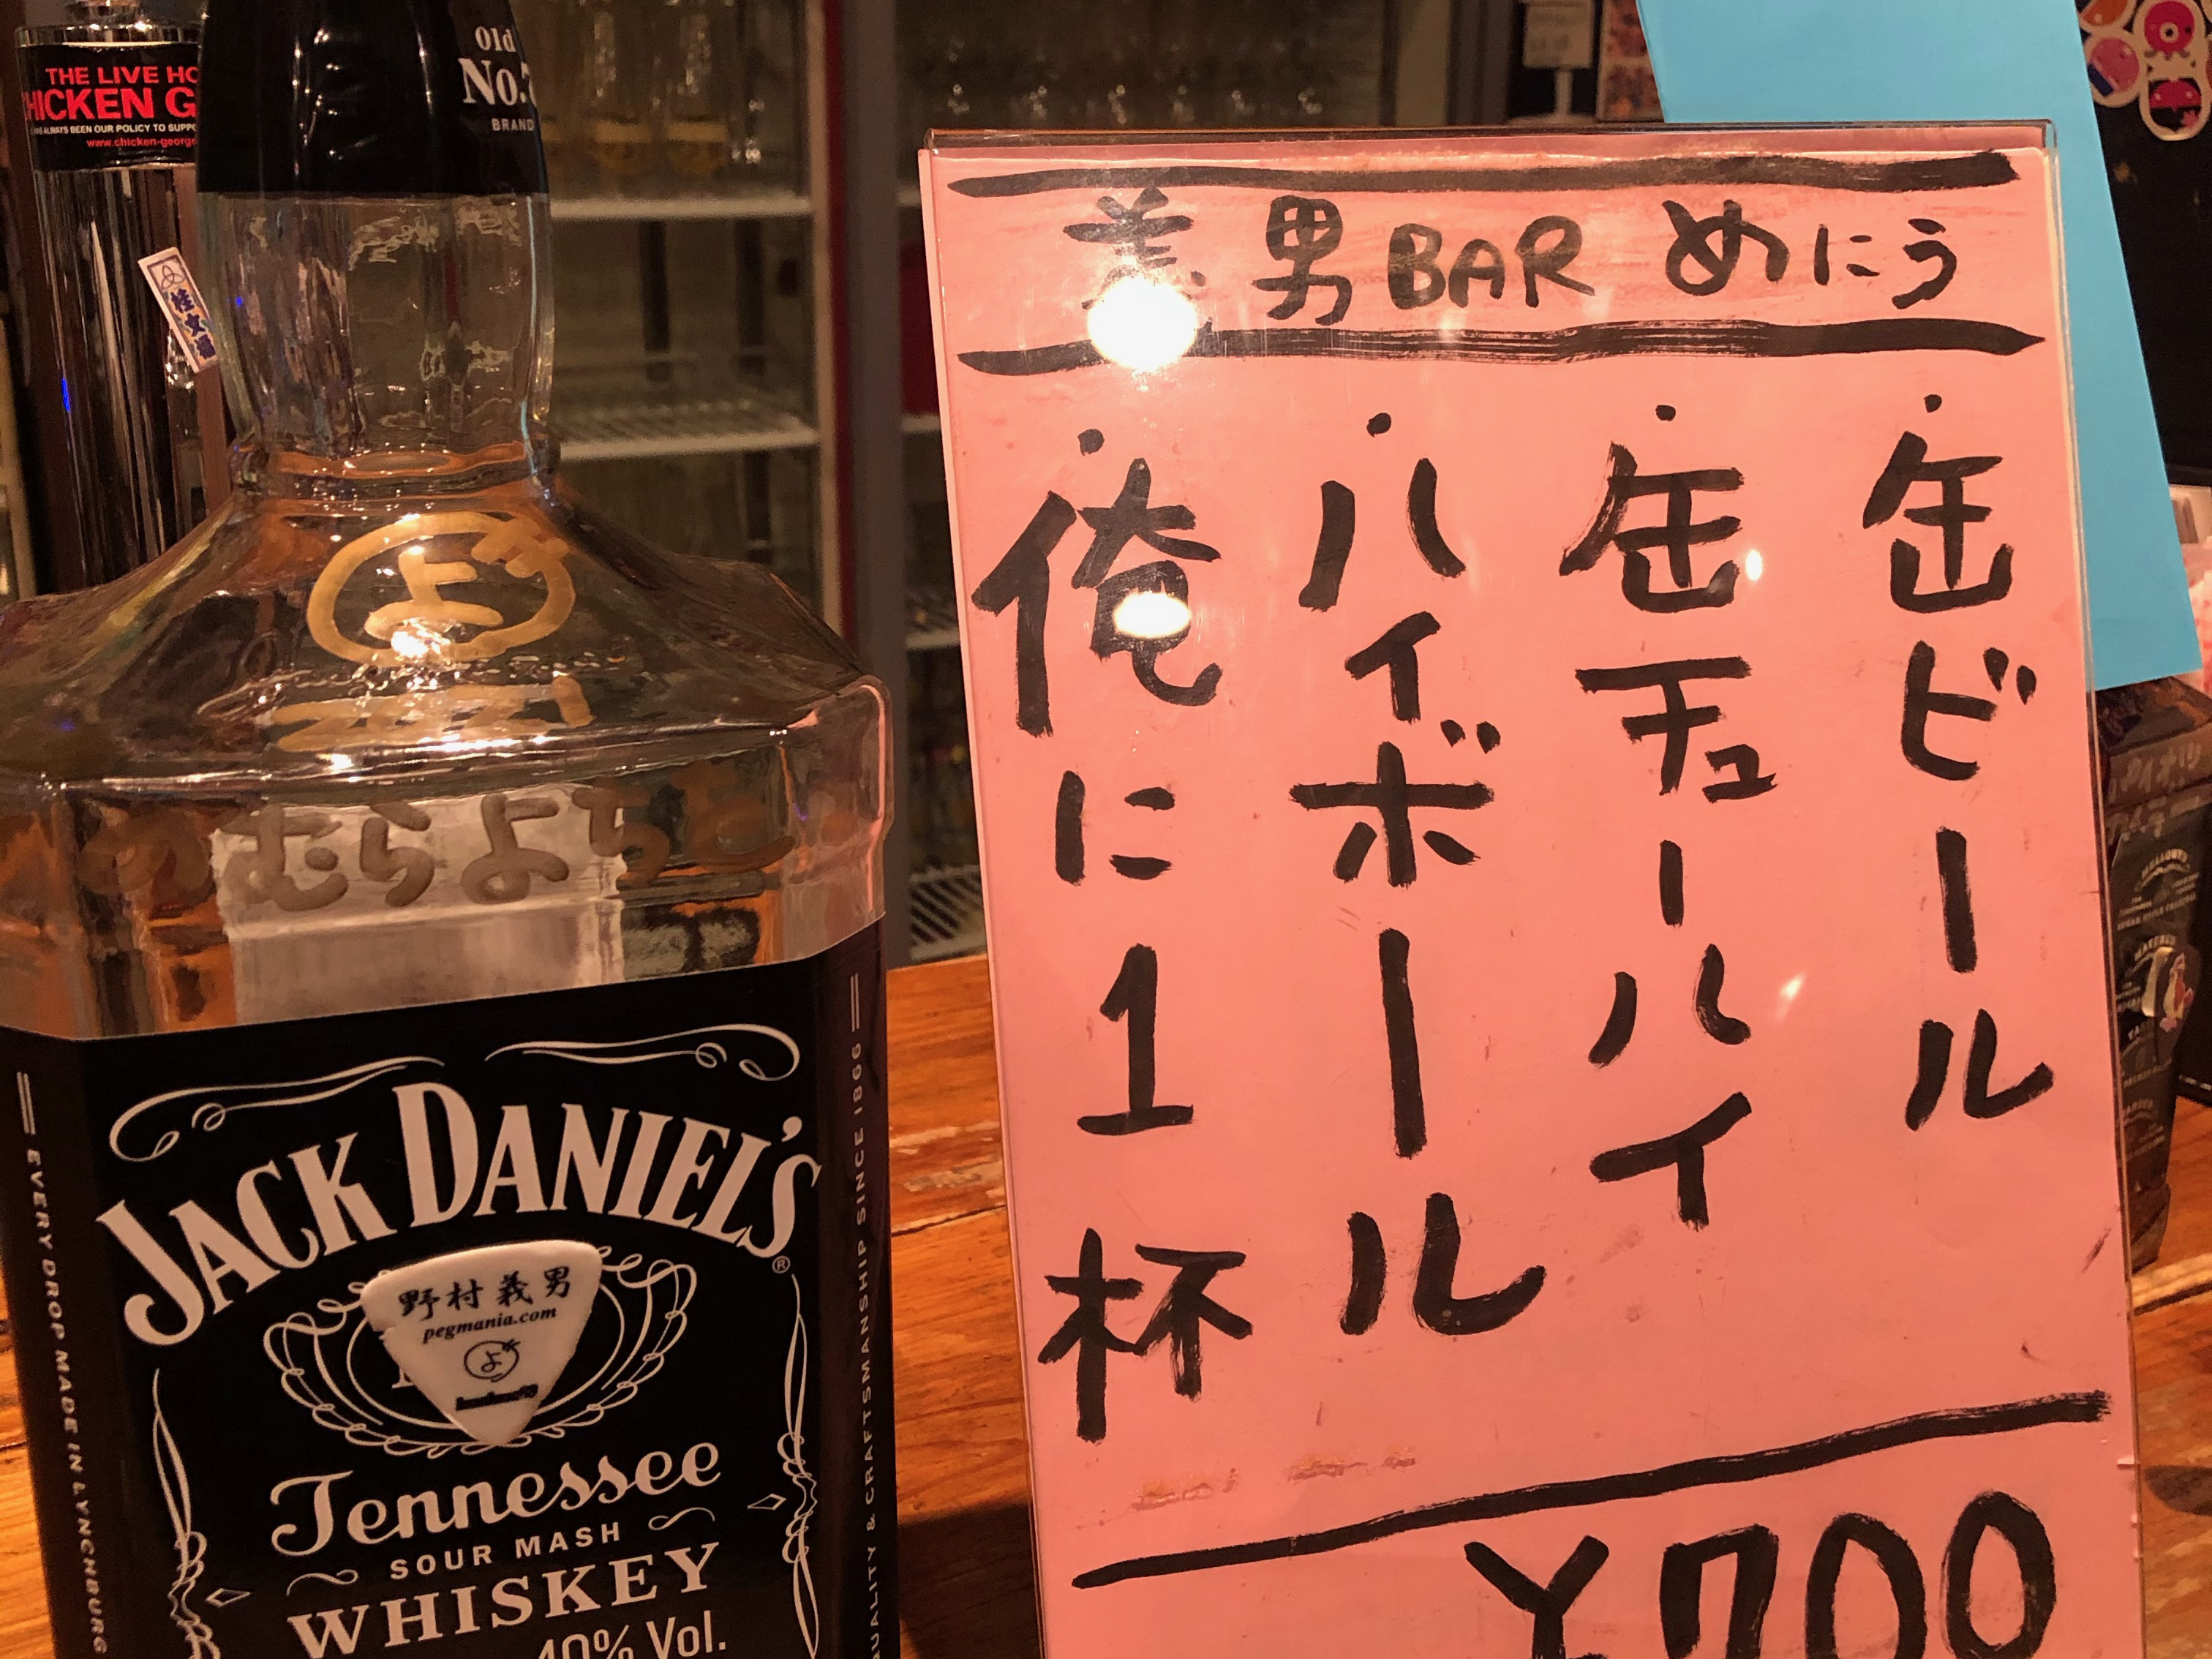 THE LIVE HO
HICKEN G
ALWAYS BEEN OUR POLICY TO SUPPO
www.chicken-george
Old
No.7
BRAND
桂文福
よ
2021
のむらよしお
JACK DANIEL'S
®
野村義男
pegmania.com
よ
Tennessee
SOUR MASH
WHISKEY
40% Vol.
EVERY DROP MADE IN LYNCHBURG
QUALITY & CRAFTSMANSHIP SINCE 1866
義男BARめにう
・缶ビール
・缶チューハイ
・ハイボール
・俺に1杯
¥700